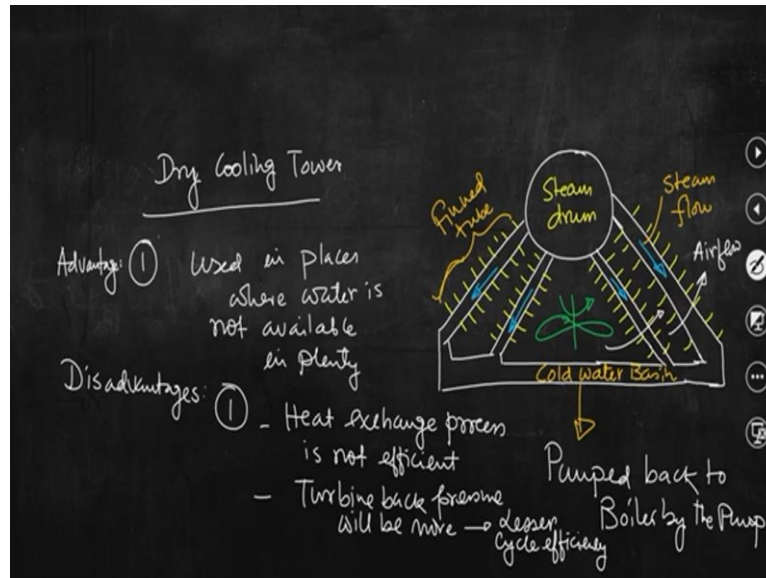 Dry Cooling Tower
Advantage: ① Used in places
where water is
not available
in plenty
Disadvantages: ①
- Heat exchange process
is not efficient
- Turbine back pressure
will be more → Lesser
Cycle efficiency
Finned
tube
Steam
drum
Steam
flow
Airflow
Cold water Basin
Pumped back to
Boiler by the Pump